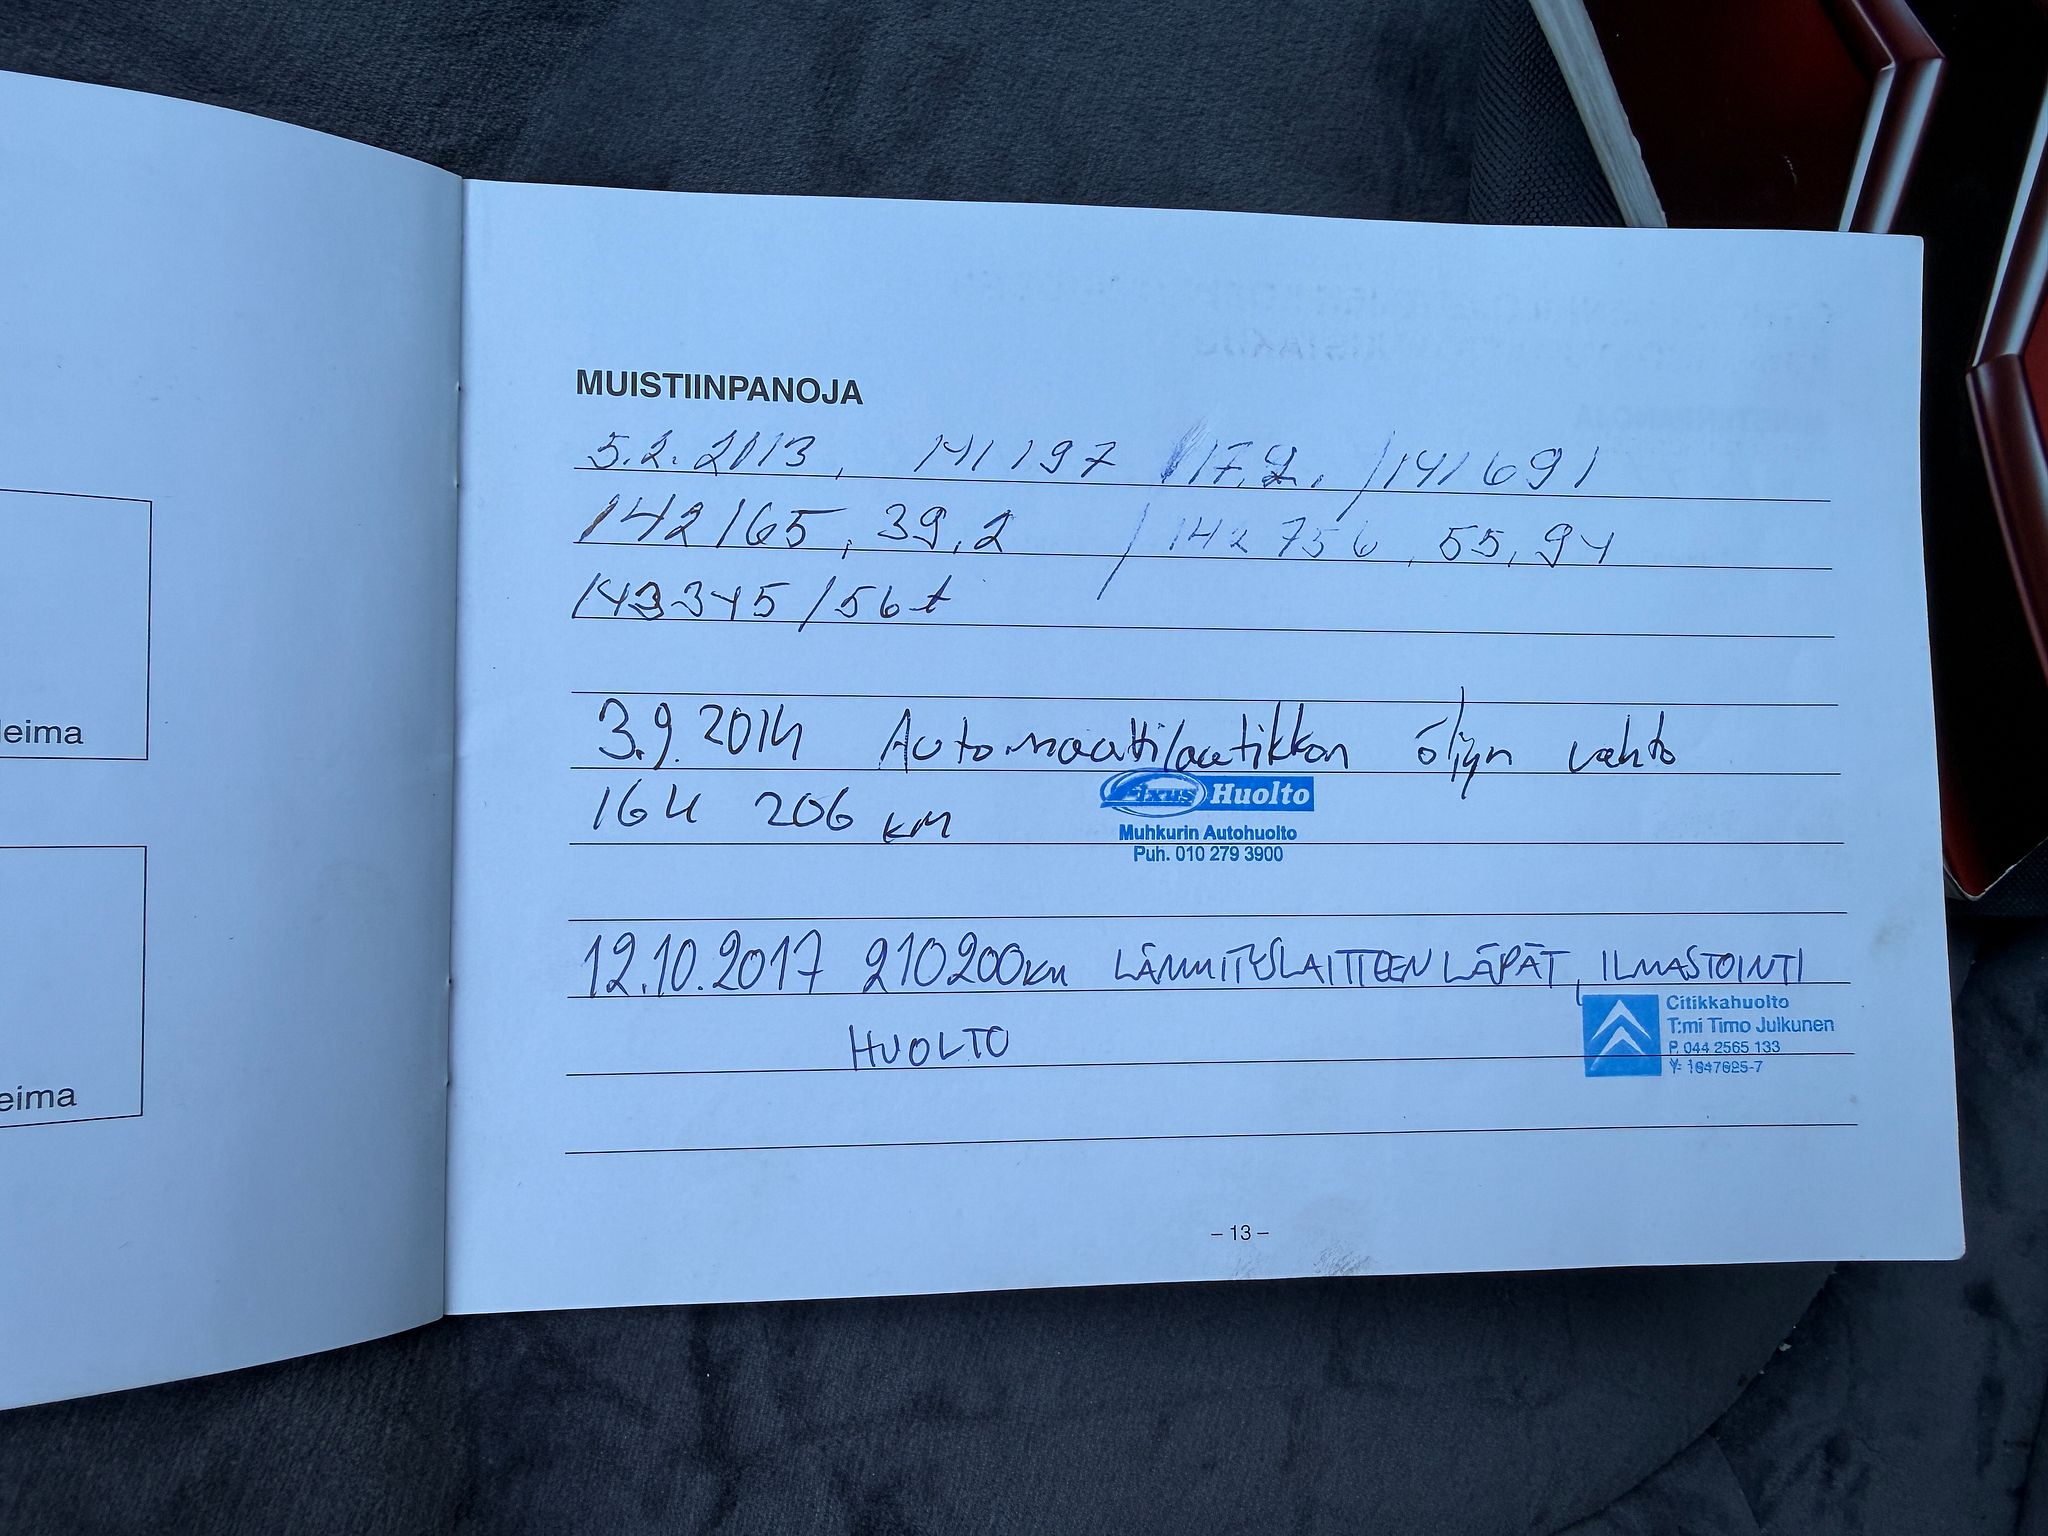 MUISTIINPANOJA
5.2.2013, 141197 17.2. / 141691
142165, 39,2 / 142756, 55,94
143345 / 56 t
3.9.2014 Automaattilaatikkon öljyn vaihto
164 206 km
Fixus Huolto
Muhkurin Autohuolto
Puh. 010 279 3900
12.10.2017 210200km LÄMMITYSLAITTEEN LÄPÄT, ILMASTOINTI
HUOLTO
Citikkahuolto
T:mi Timo Julkunen
P. 044 2565 133
Y: 1647625-7
– 13 –
leima
eima